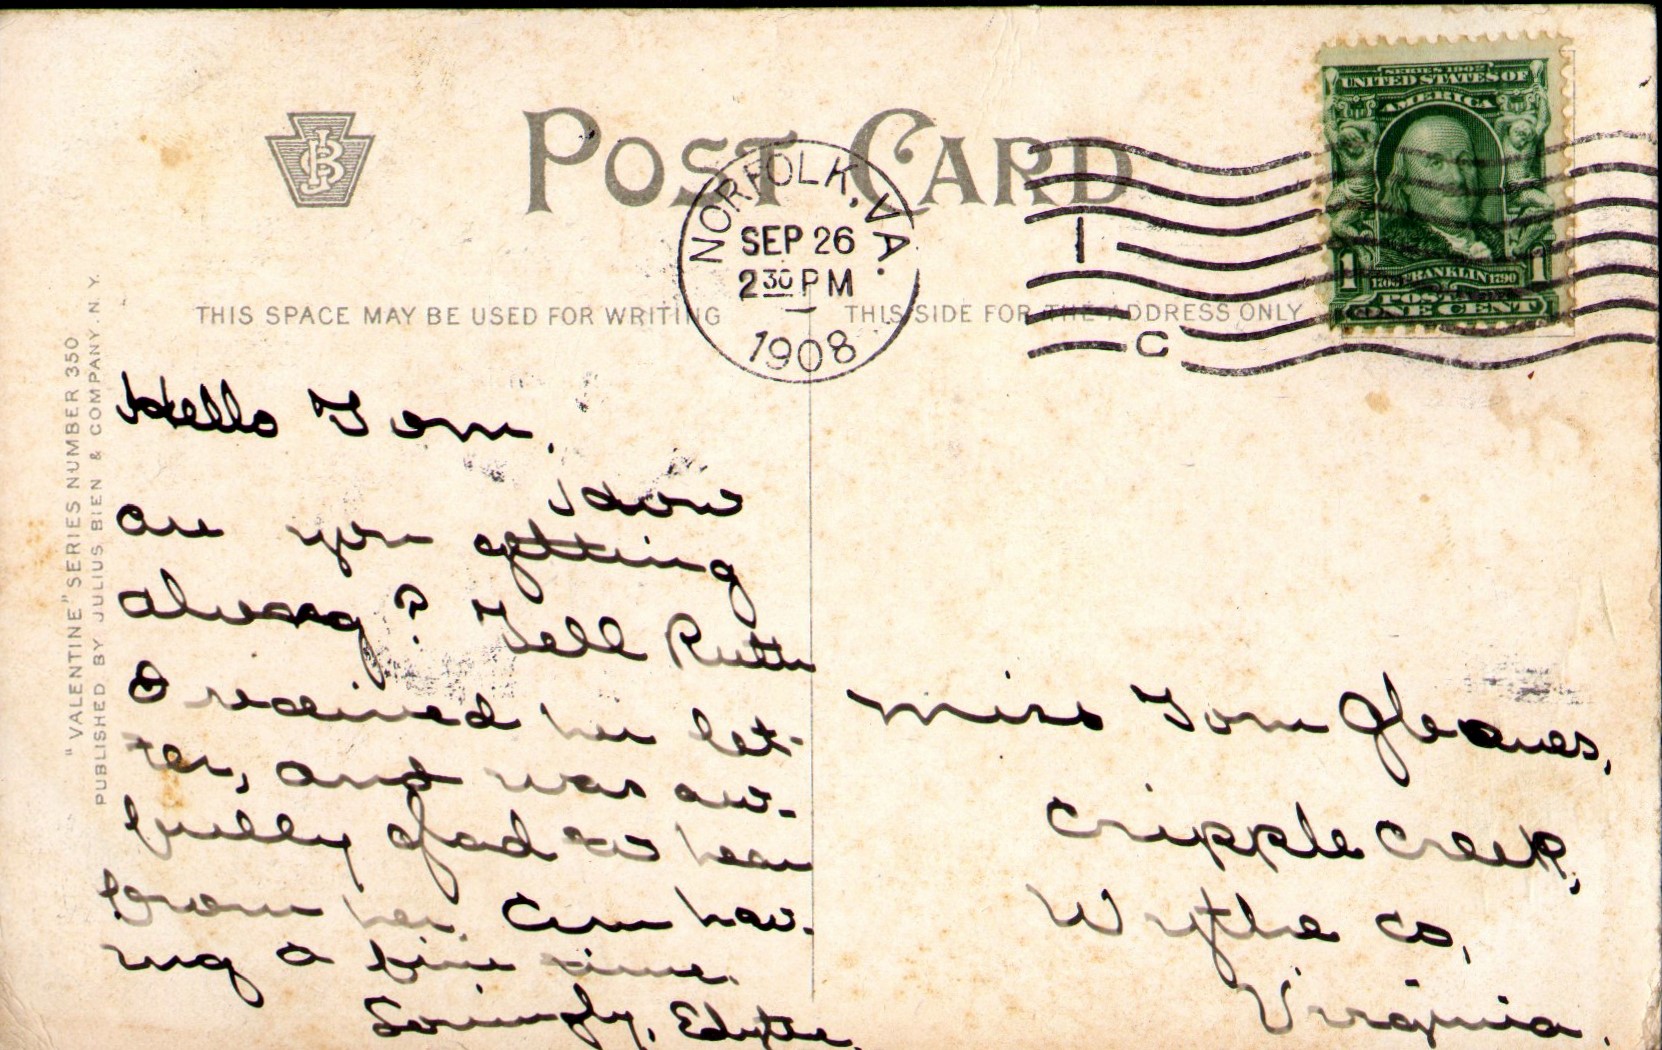 POST CARD
JB
NORFOLK, VA.
SEP 26
2 30 PM
1908
1
C
SERIES 1902
UNITED STATES OF
AMERICA
1 1
1706 FRANKLIN 1790
POSTAGE
ONE CENT
THIS SPACE MAY BE USED FOR WRITING
THIS SIDE FOR THE ADDRESS ONLY
"VALENTINE" SERIES NUMBER 350
PUBLISHED BY JULIUS BIEN & COMPANY. N.Y.
Hello Tom,
How
are you getting
along? Tell Ruth
I received her let-
ter, and was aw-
fully glad to hear
from her. Am hav-
ing a fine time.
Lovingly, Edythe.
Miss Tom Gleaves,
Cripple Creek,
Wythe Co,
Virginia.